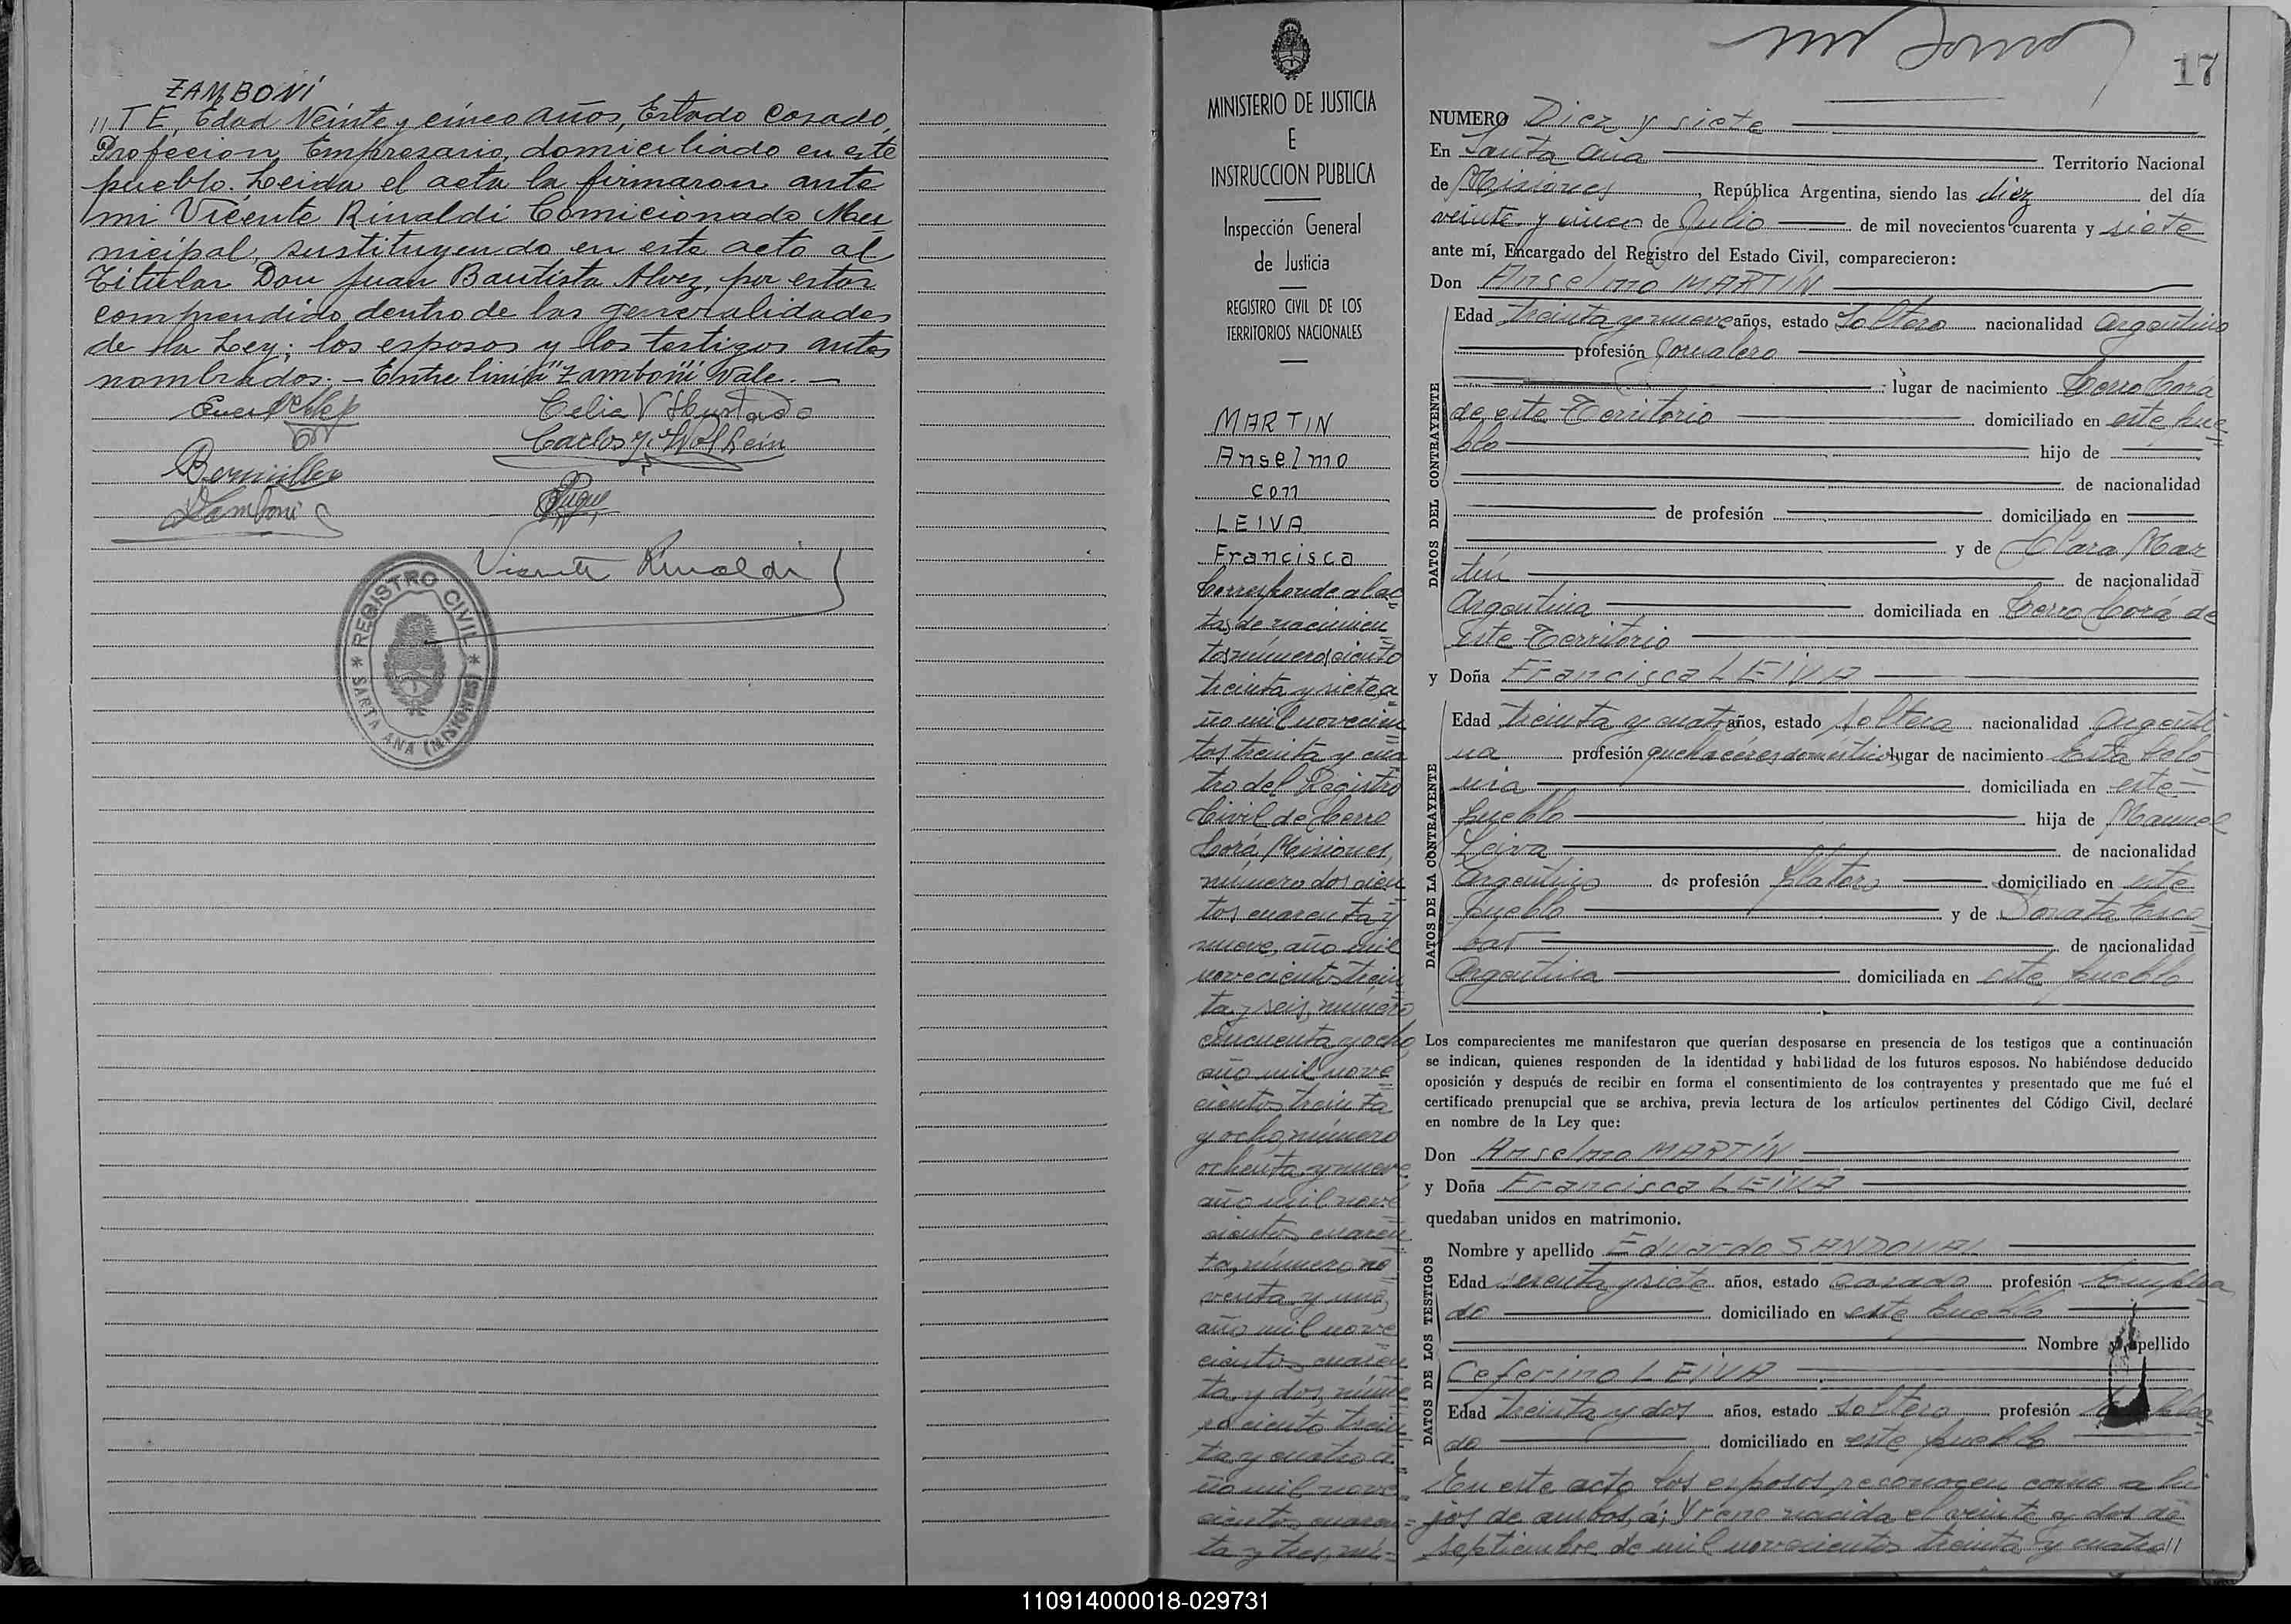 ZAMBONI
"TE, Edad Veinte y cinco años, Estado Casado,
Profecion Empresario, domiciliado en este
pueblo. Leida el acta la firmaron ante
mi Vicente Rinaldi Comicionado Mu
nicipal, sustituyendo en este acto al
Titular Don Juan Bautista Alvez, por estar
comprendido dentro de las generalidades
de la Ley; los esposos y los testigos antes
nombrados.- Entre linia "Zamboni" Vale.-
Celia V Hurtado
Carlos
Zamboni
Vicente Rinaldi
* REGISTRO CIVIL *
SANTA ANA (MISIONES)
MINISTERIO DE JUSTICIA
E
INSTRUCCION PUBLICA
Inspección General
de Justicia
REGISTRO CIVIL DE LOS
TERRITORIOS NACIONALES
MARTIN
Anselmo
con
LEIVA
Francisca
Corresponde a lac
tas de nacimien
tos número ciento
treinta y siete, a
ño mil novecien
tos treinta y cua
tro del Registro
Civil de Cerro
Corá, Misiones,
número dos cien
tos cuarenta y
nueve, año mil
novecientos trein
ta y seis, número
cincuenta y ocho,
año mil nove
cientos treinta
y ocho, número
ochenta y nueve
año mil nove
cientos cuaren
ta, número no
venta y uno,
año mil nove
cientos cuaren
ta y dos, núme
ro ciento trein
ta y cuatro a
ño mil nove
cientos cuaren=
ta y tres, nú=
17
NUMERO Diez y siete
En Santa Ana Territorio Nacional
de Misiones, República Argentina, siendo las diez del día
veinte y cinco de Julio de mil novecientos cuarenta y siete
ante mí, Encargado del Registro del Estado Civil, comparecieron:
Don Anselmo MARTIN
DATOS DEL CONTRAYENTE
Edad treinta y nueve años, estado Soltero nacionalidad Argentino
profesión Jornalero
lugar de nacimiento Cerro Corá
de este Territorio domiciliado en este pue=
blo hijo de
de nacionalidad
de profesión domiciliado en
y de Clara Mar
tín de nacionalidad
Argentina domiciliada en Cerro Corá de
este Territorio
y Doña Francisca LEIVA
DATOS DE LA CONTRAYENTE
Edad treinta y cuatro años, estado soltera nacionalidad Argenti
na profesión quehaceres domésticos, lugar de nacimiento Esta Colo
nia domiciliada en este
pueblo hija de Manuel
Leiva de nacionalidad
Argentino de profesión domiciliado en este
pueblo y de Esco
bar de nacionalidad
Argentina domiciliada en este pueblo
Los comparecientes me manifestaron que querían desposarse en presencia de los testigos que a continuación
se indican, quienes responden de la identidad y habilidad de los futuros esposos. No habiéndose deducido
oposición y después de recibir en forma el consentimiento de los contrayentes y presentado que me fué el
certificado prenupcial que se archiva, previa lectura de los artículos pertinentes del Código Civil, declaré
en nombre de la Ley que:
Don Anselmo MARTÍN
y Doña Francisca LEIVA
quedaban unidos en matrimonio.
DATOS DE LOS TESTIGOS
Nombre y apellido Eduardo SANDOVAL
Edad y siete años, estado casado profesión Emplea
do domiciliado en este pueblo
Nombre y apellido
Ceferino LEIVA
Edad treinta y dos años, estado soltero profesión
do domiciliado en este pueblo
En este acto los esposos reconocen como a hi
jos de ambos, a; Yrene nacida el veinte y dos de
septiembre de mil novecientos treinta y cuatro//
110914000018-029731